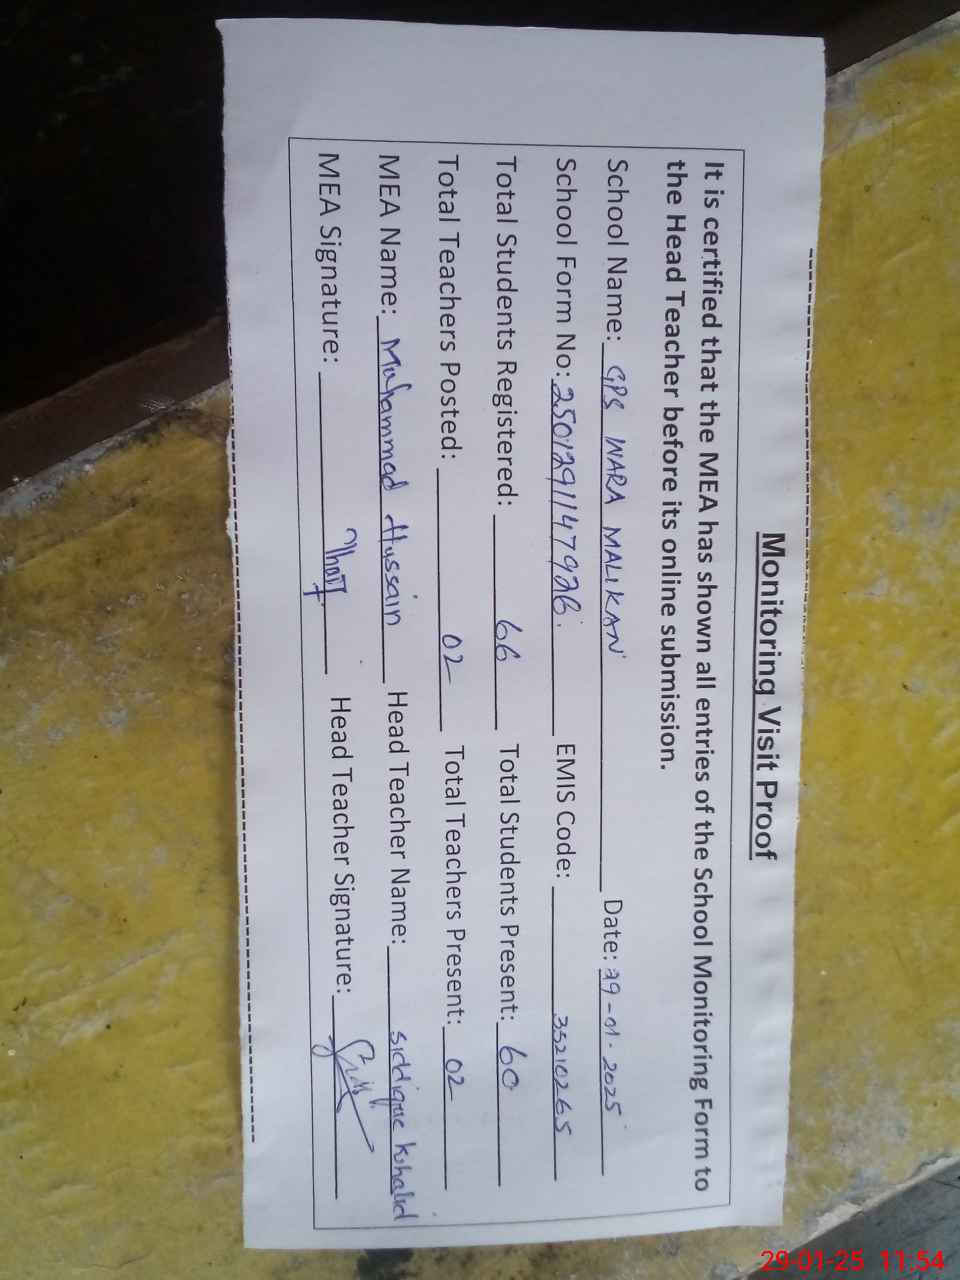 Monitoring Visit Proof
It is certified that the MEA has shown all entries of the School Monitoring Form to
the Head Teacher before its online submission.
School Name: GPS WARA MALIKAN Date: 29-01-2025
School Form No: 250129114792B. EMIS Code: 35210265
Total Students Registered: 66 Total Students Present: 60
Total Teachers Posted: 02 Total Teachers Present: 02
MEA Name: Muhammad Hussain Head Teacher Name: Siddique Kohalid
MEA Signature: Head Teacher Signature:
29-01-25 11:54